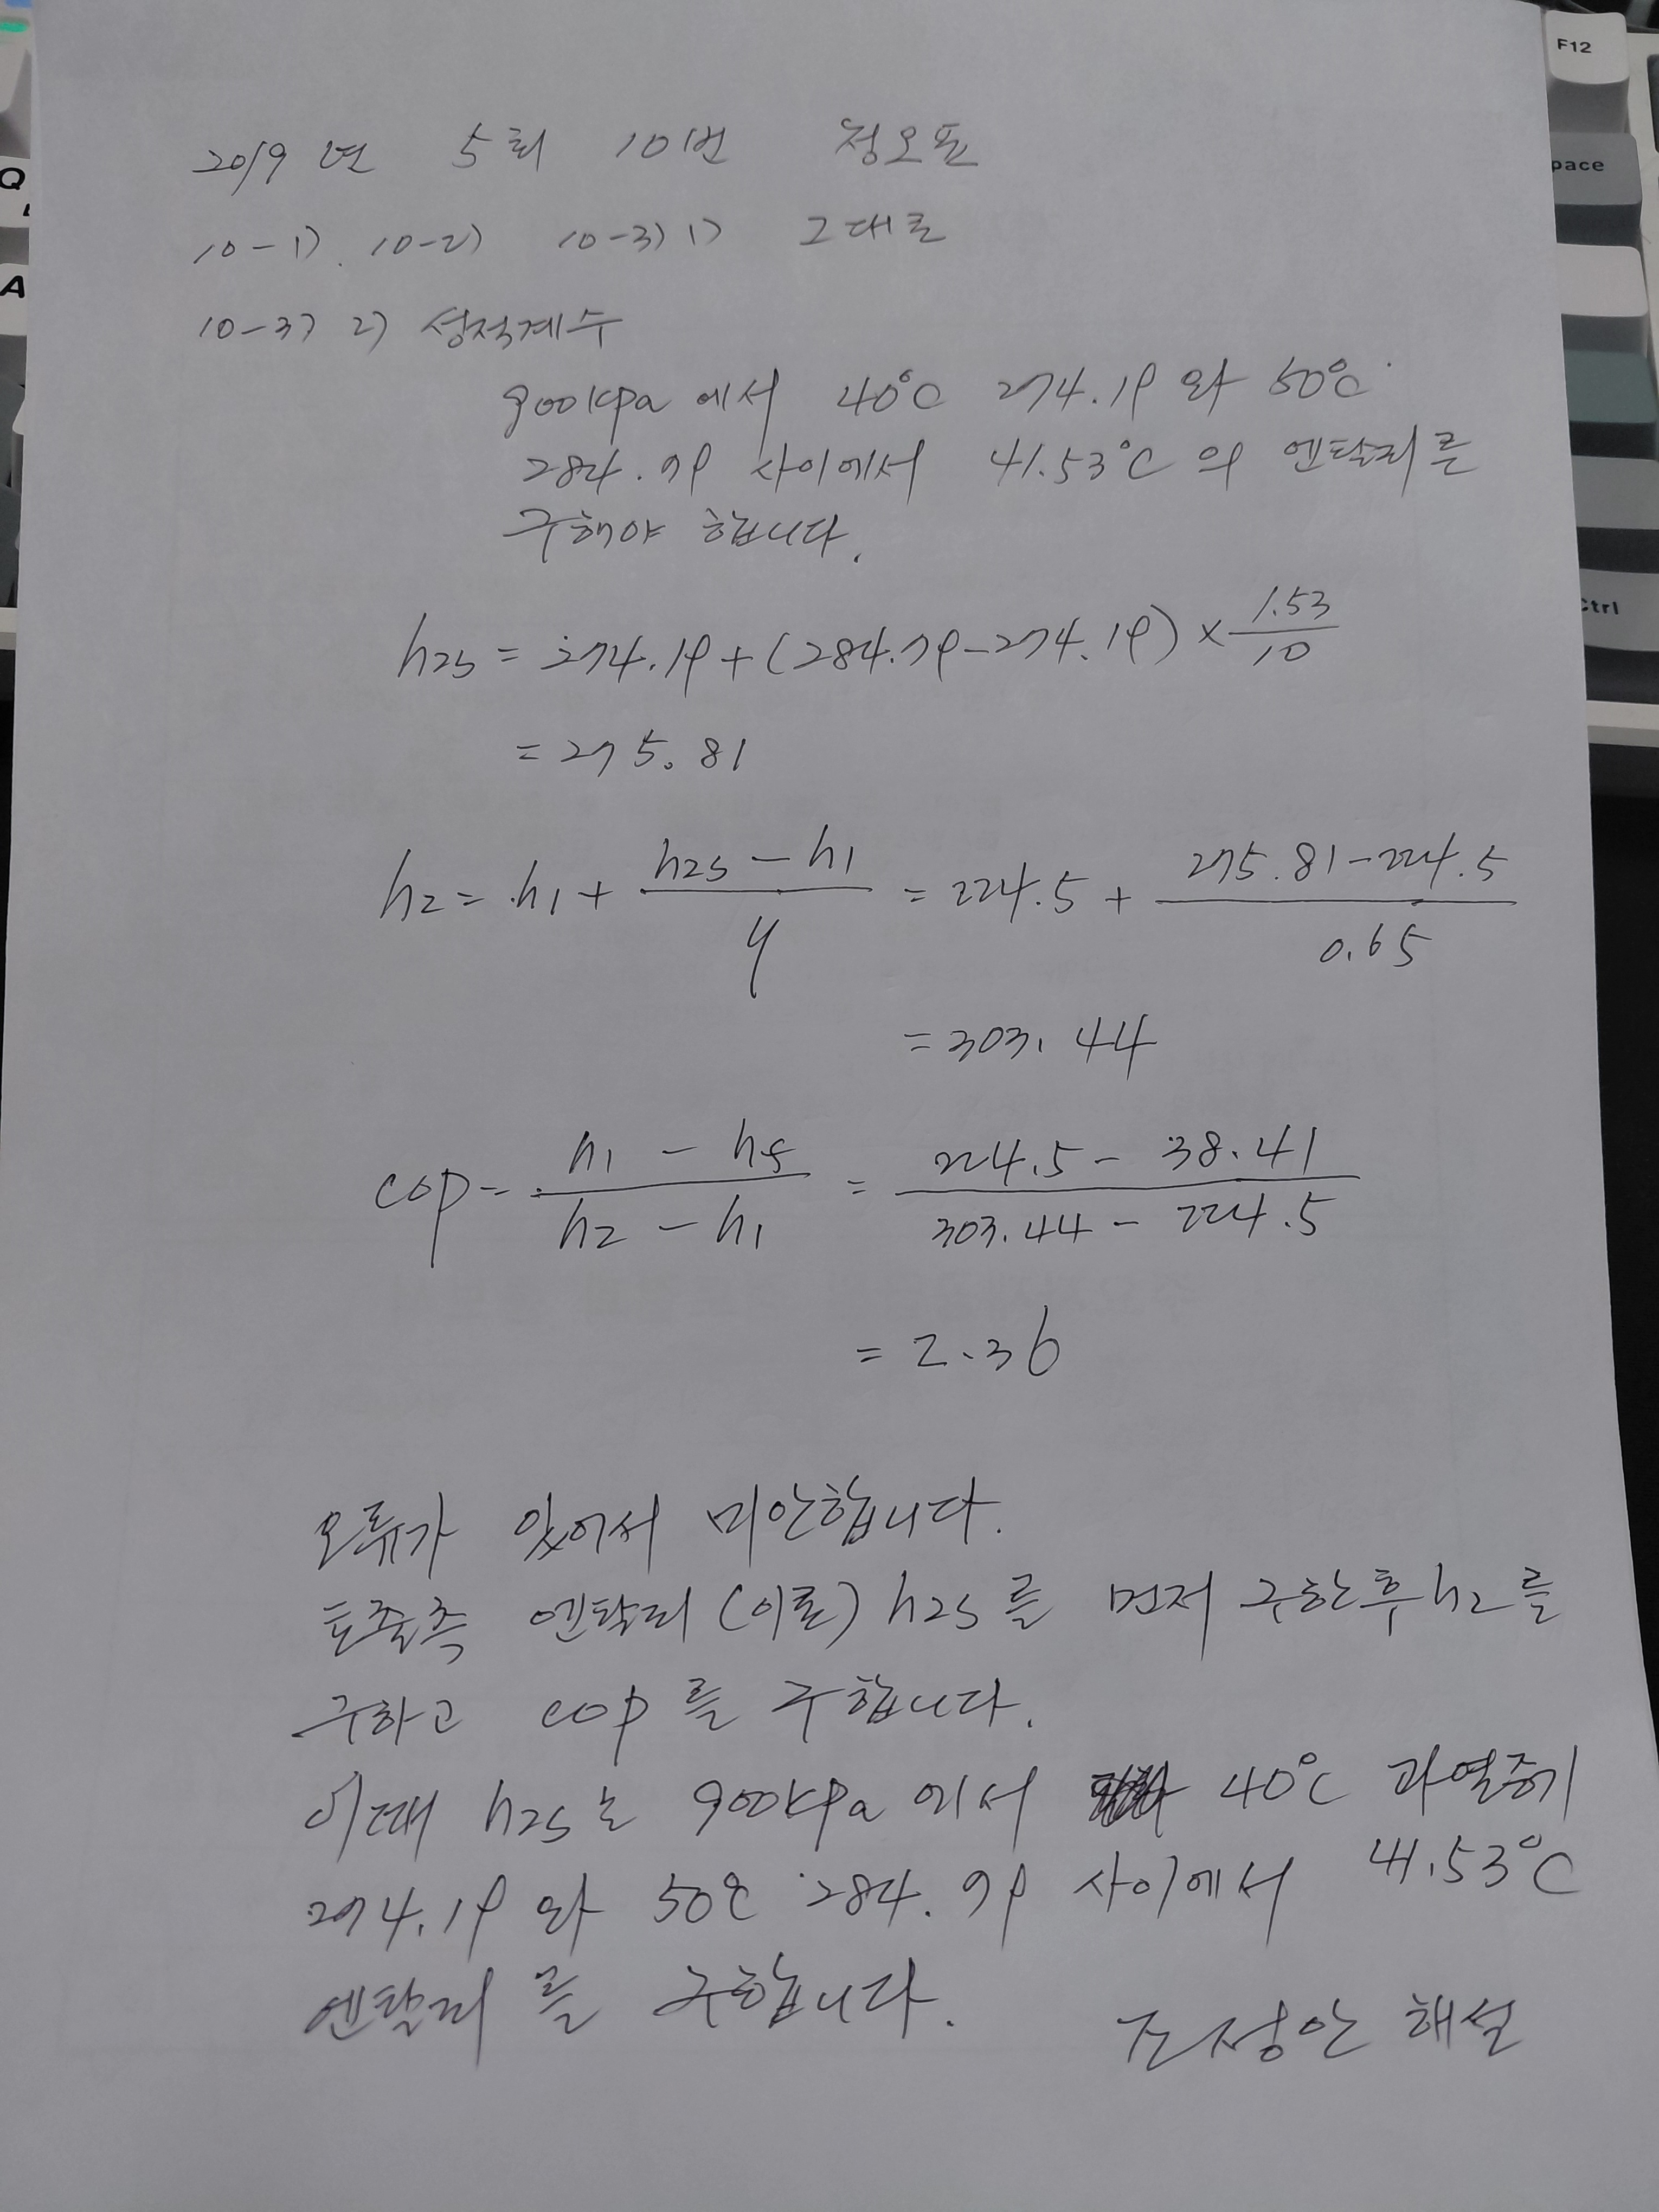 F12
Q
pace
A
Ctrl
2019년 5회 10번 정오표
10-1) 10-2) 10-3) 1) 그대로
10-3) 2) 성적계수
900kpa 에서 40°C 274.19 와 50°C
284.79 사이에서 41.53°C 의 엔탈피를
구해야 합니다.
h2s = 274.19 + (284.79 - 274.19) × 1.53/10
= 275.81
h2 = h1 + (h2s - h1)/η = 224.5 + (275.81 - 224.5)/0.65
= 303.44
cop = (h1 - hf)/(h2 - h1) = (224.5 - 38.41)/(303.44 - 224.5)
= 2.36
오류가 있어서 미안합니다.
토출측 엔탈피(이론) h2s를 먼저 구한후 h2를
구하고 cop를 구합니다.
이때 h2s는 900kpa에서 40°C 과열증기
274.19 와 50℃ 284.79 사이에서 41.53°C
엔탈피를 구합니다.
조정안 해설